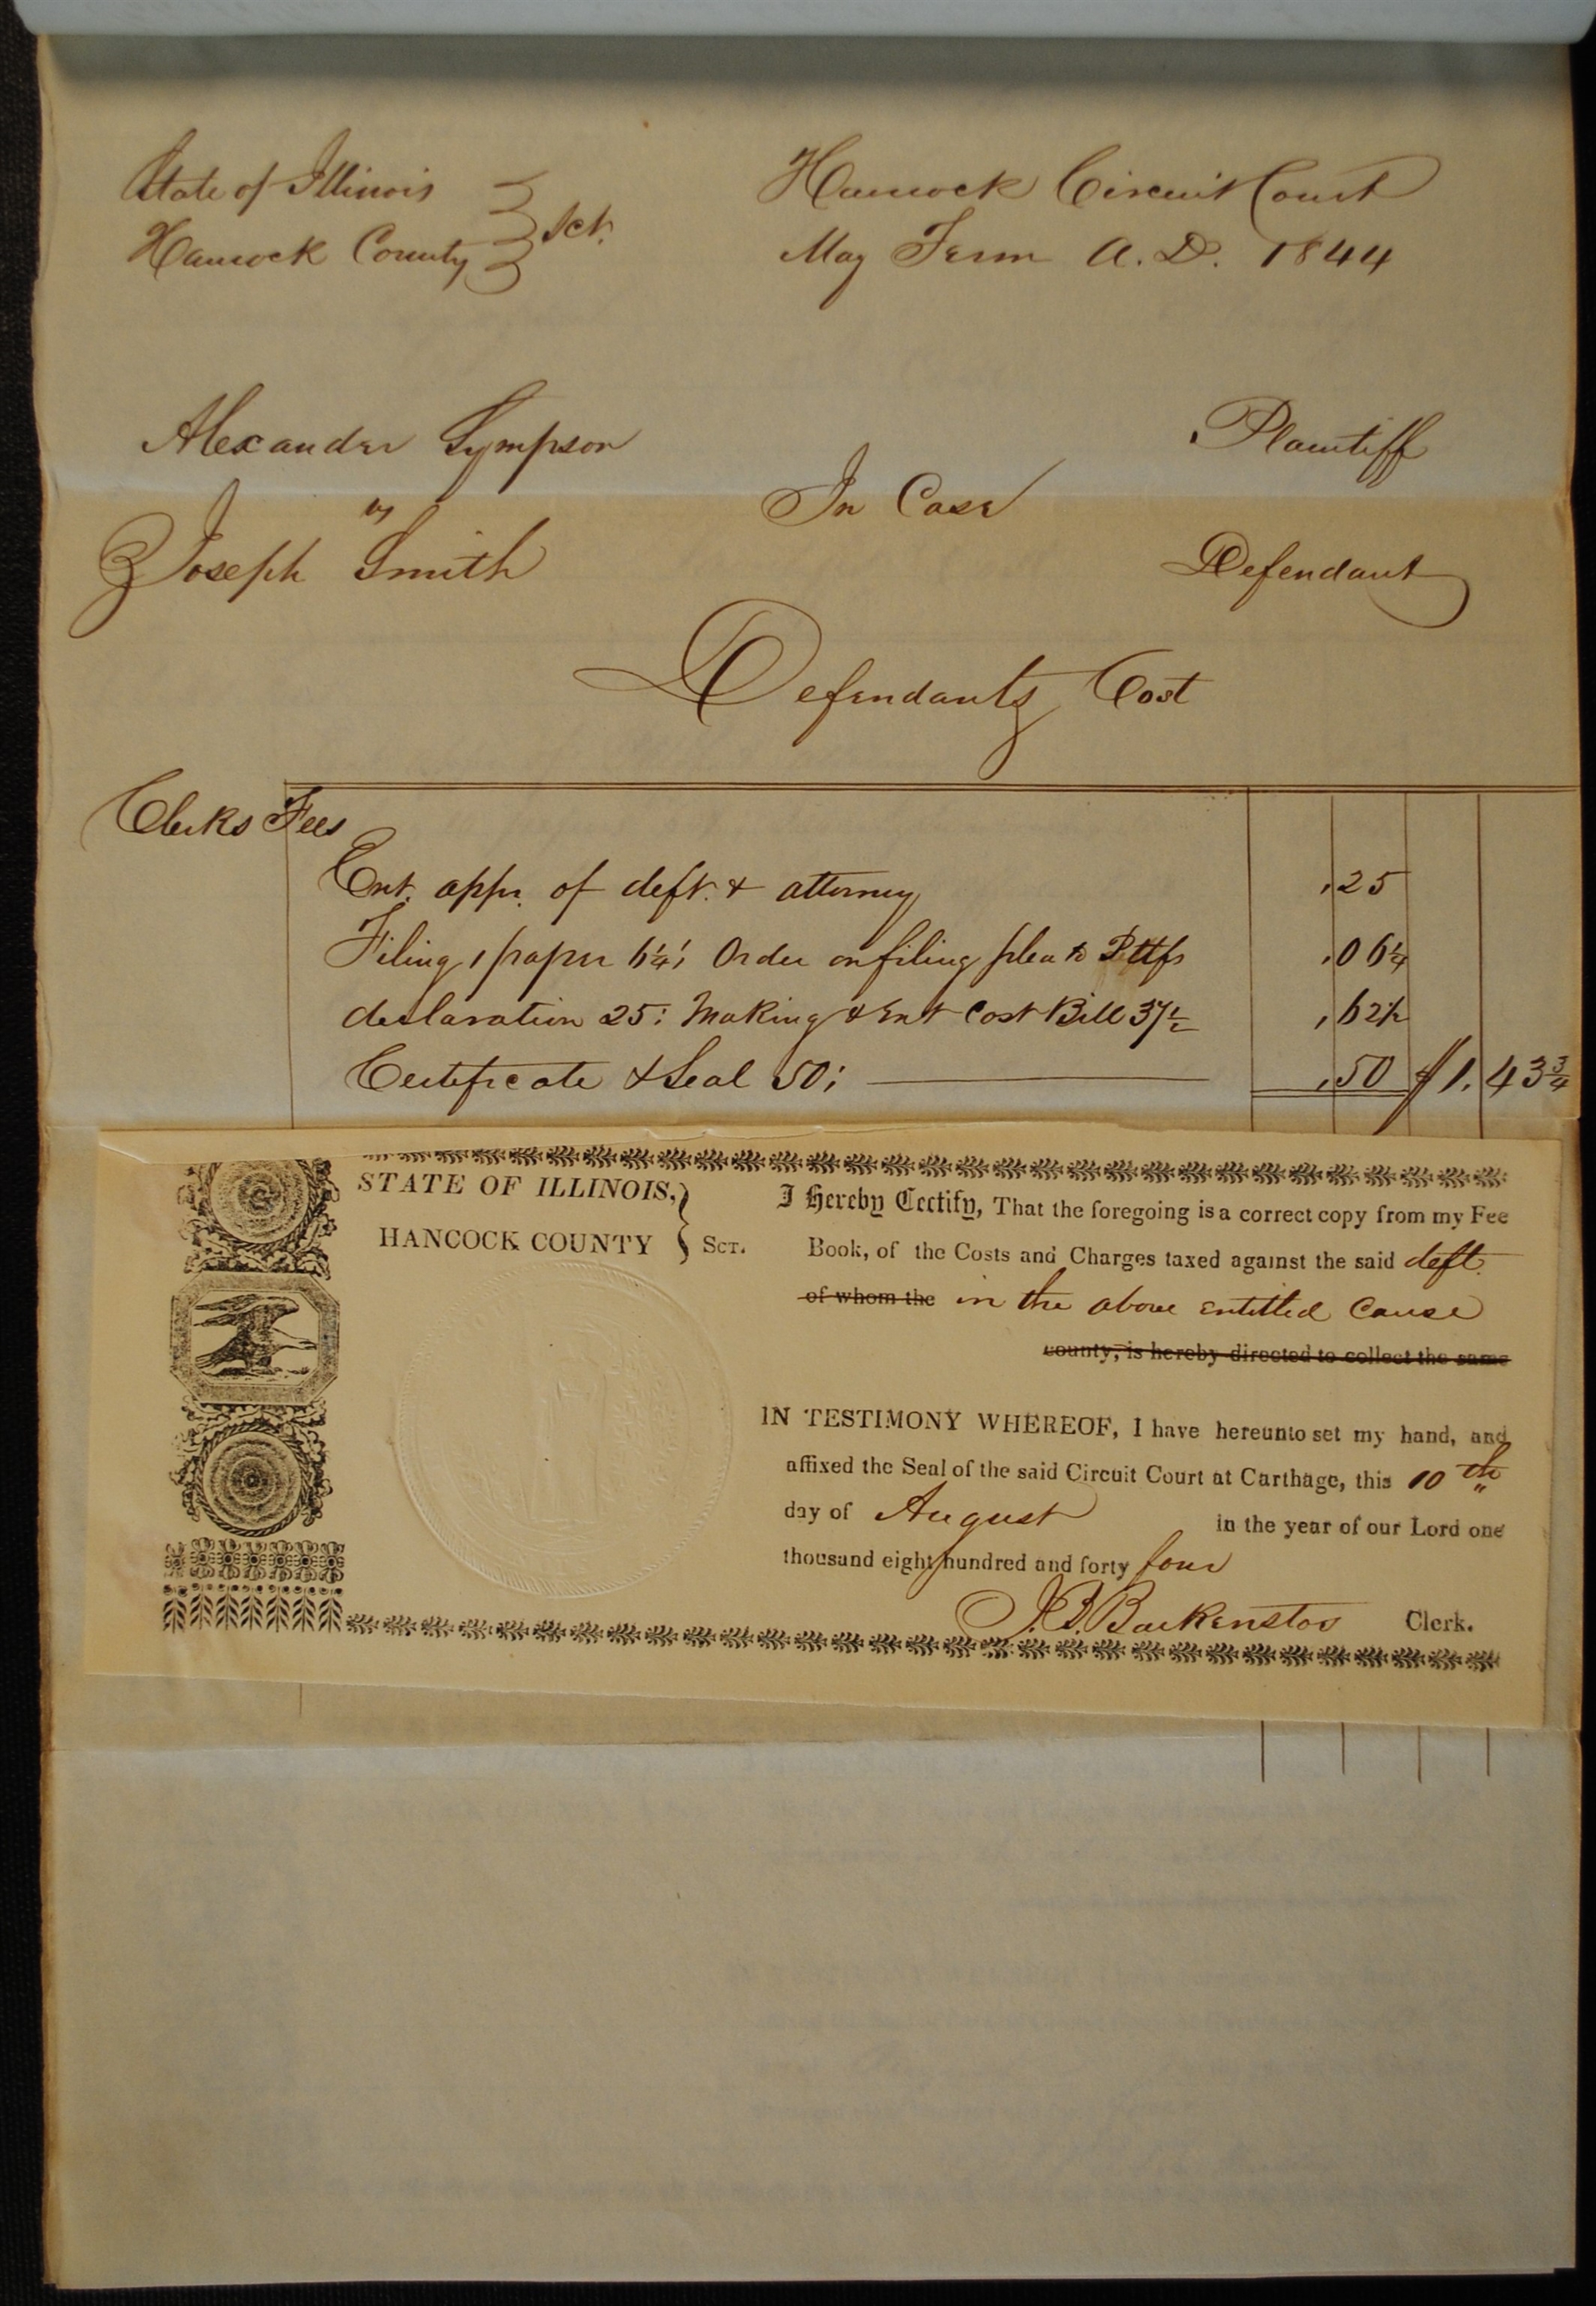 State of Illinois } Sct.
Hancock County }
Hancock Circuit Court
May Term A.D. 1844
Alexander Sympson
Plaintiff
vs
In Case
Joseph Smith
Defendant
Defendants Cost
Clerks Fees
Ent. appr. of deft. & attorney ,25
Filing 1 paper 6¼; Order on filing plea to Pltfs ,06¼
declaration 25; Making & Ent Cost Bill 37½ ,62½
Certificate & Seal 50; ,50 $1.43¾
STATE OF ILLINOIS, }
HANCOCK COUNTY } SCT.
I Hereby Certify, That the foregoing is a correct copy from my Fee
Book, of the Costs and Charges taxed against the said deft.
of whom the in the above entitled Cause
county, is hereby directed to collect the same
IN TESTIMONY WHEREOF, I have hereunto set my hand, and
affixed the Seal of the said Circuit Court at Carthage, this 10th
day of August in the year of our Lord one
thousand eight hundred and forty four
J. B. Backenstos Clerk.